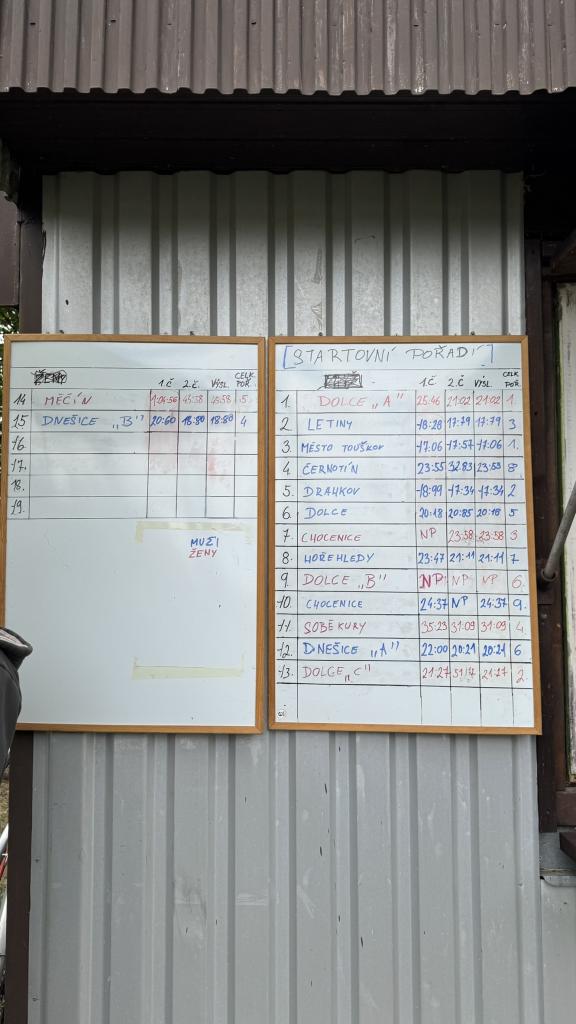 1.Č 2.Č VÝSL. CELK. POŘ.
14. MĚČÍN 1:04:56 45:58 45:58 5.
15. DNEŠICE „B" 20:60 18:80 18:80 4
16.
17.
18.
19.
MUŽI
ŽENY
[STARTOVNÍ POŘADÍ]
1.Č 2.Č VÝSL. CELK. POŘ.
1. DOLCE „A" 25:46 21:02 21:02 1.
2 LETINY 18:28 17:79 17:79 3
3. MĚSTO TOUŠKOV 17:06 17:57 17:06 1.
4 ČERNOTÍN 23:55 32:83 23:55 8
5. DRAHKOV 18:99 17:34 17:34 2
6. DOLCE 20:18 20:85 20:18 5
7 CHOCENICE NP 23:58 23:58 3
8. HOŘEHLEDY 23:47 21:11 21:11 7
9. DOLCE „B" NP NP NP 6.
10. CHOCENICE 24:37 NP 24:37 9.
11. SOBĚKURY 35:23 31:09 31:09 4.
12. DNEŠICE „A" 22:00 20:21 20:21 6
13. DOLCE „C" 21:27 21:27 2